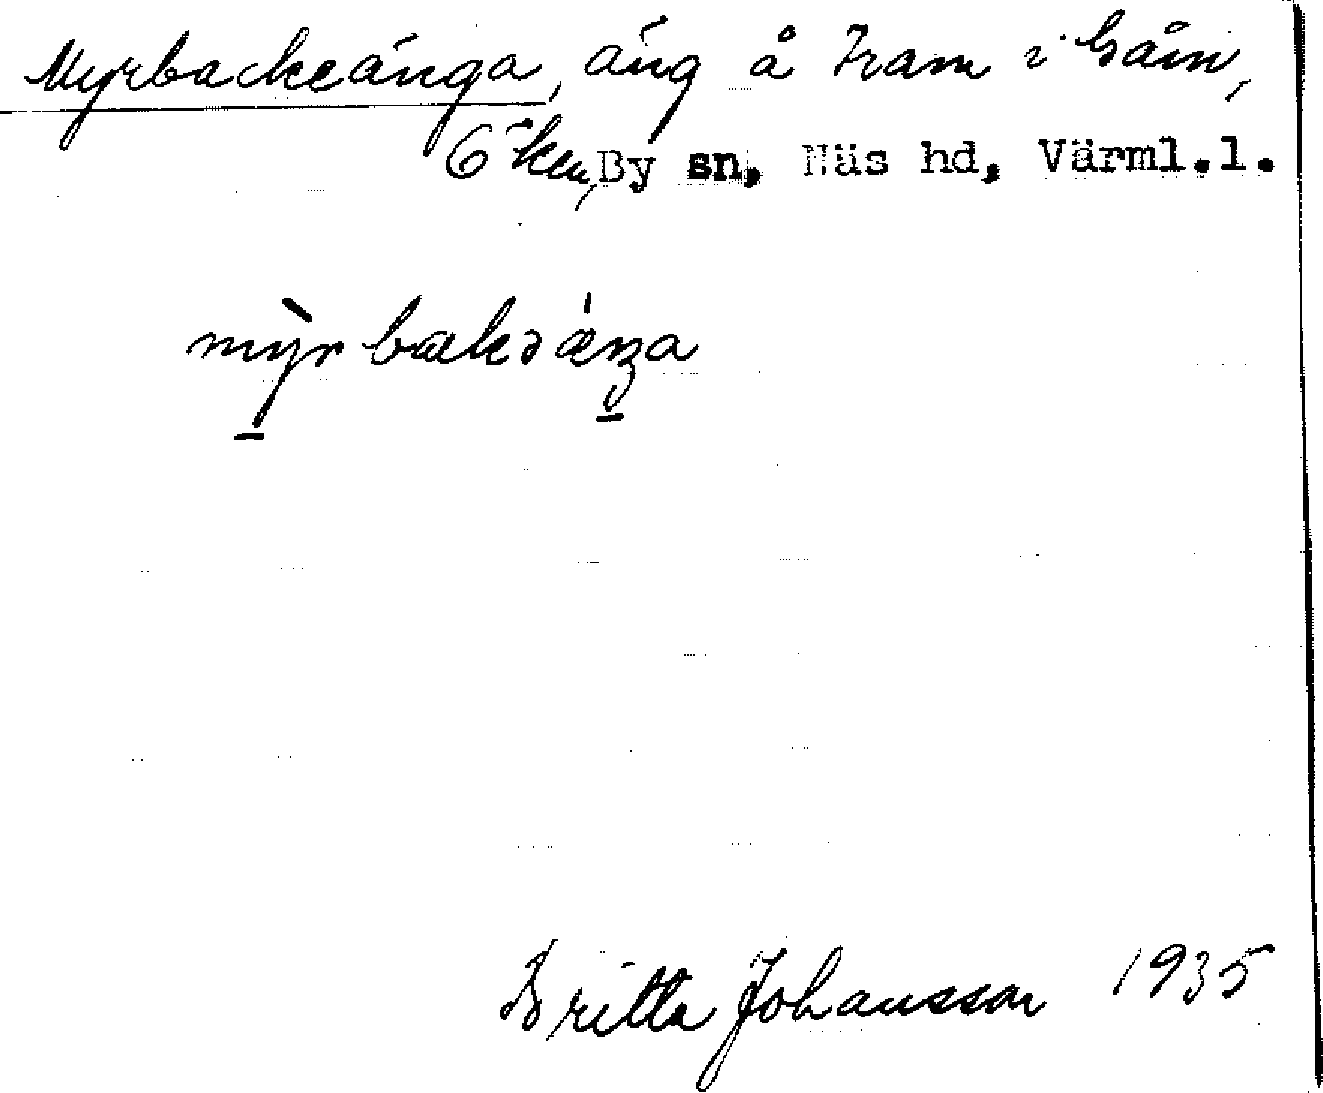 Myrbackeänga, äng å Tram i Gåin,
Öken, By sn, Näs hd, Värml.l.
mỳrbakəǽŋa
Britta Johansson 1935